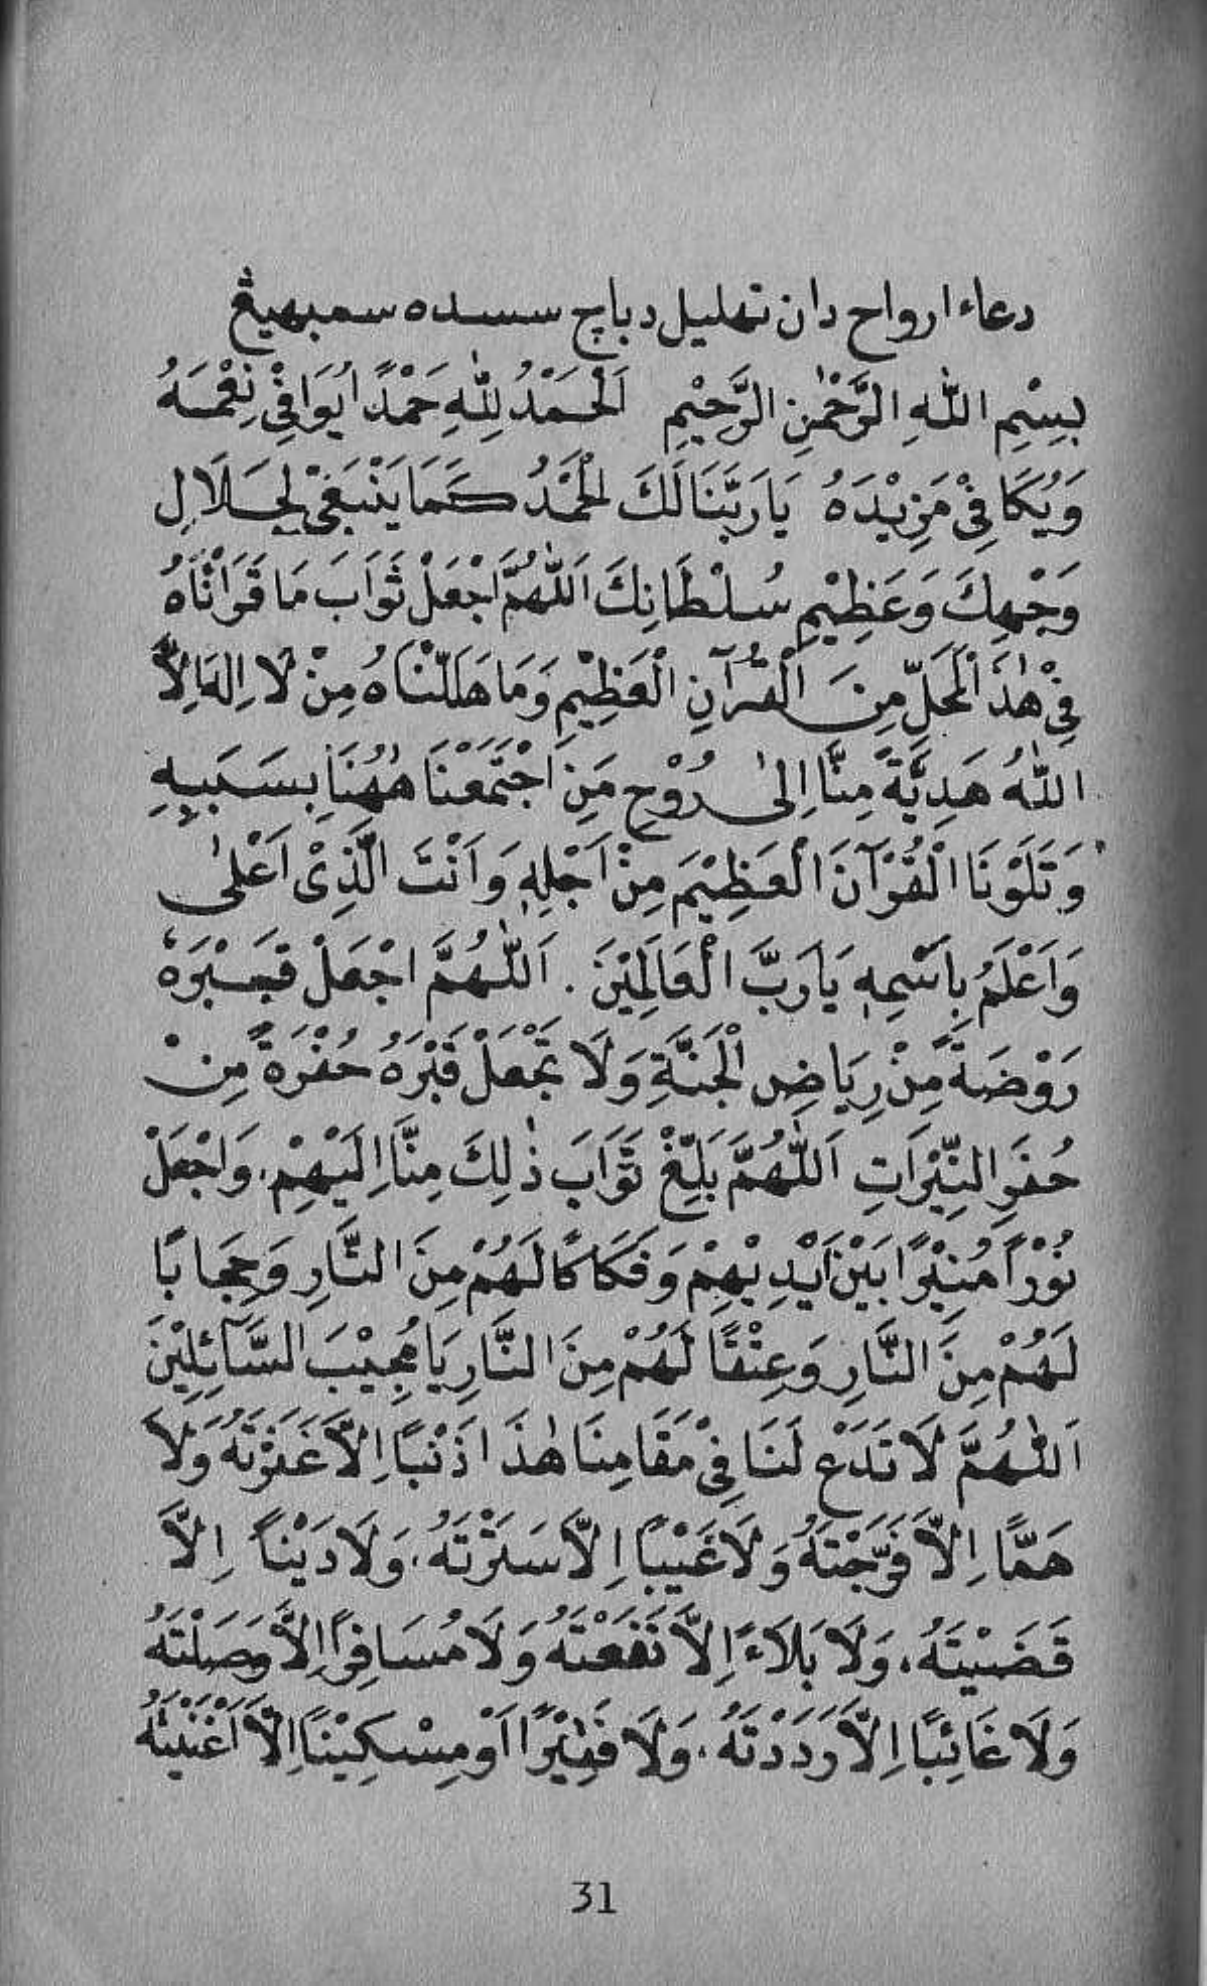 دعاء ارواح دان تهليل دباچ سسده سمبهيڠ
بِسْمِ اللّٰهِ الرَّحْمٰنِ الرَّحِيْمِ اَلْحَمْدُ لِلّٰهِ حَمْدًا يُوَافِيْ نِعْمَهُ
وَيُكَافِيْ مَزِيْدَهُ يَارَبَّنَا لَكَ الْحَمْدُ كَمَا يَنْبَغِيْ لِجَلَالِ
وَجْهِكَ وَعَظِيْمِ سُلْطَانِكَ اَللّٰهُمَّ اجْعَلْ ثَوَابَ مَا قَرَاْنَاهُ
فِيْ هٰذَا الْمَحَلِّ مِنَ الْقُرْآنِ الْعَظِيْمِ وَمَا هَلَّلْنَاهُ مِنْ لَا اِلٰهَ اِلَّا
اللّٰهُ هَدِيَّةً مِنَّا اِلٰى رُوْحِ مَنِ اجْتَمَعْنَا هٰهُنَا بِسَبَبِهِ
وَتَلَوْنَا الْقُرْآنَ الْعَظِيْمَ مِنْ اَجْلِهٖ وَاَنْتَ الَّذِيْ اَعْلٰى
وَاَعْلَمُ بِاَسْمِهٖ يَارَبَّ الْعَالَمِيْنَ . اَللّٰهُمَّ اجْعَلْ قَبْرَهُ
رَوْضَةً مِنْ رِيَاضِ الْجَنَّةِ وَلَا تَجْعَلْ قَبْرَهُ حُفْرَةً مِنْ
حُفَرِ النِّيْرَاتِ اَللّٰهُمَّ بَلِّغْ ثَوَابَ ذٰلِكَ مِنَّا اِلَيْهِمْ، وَاجْعَلْ
نُوْرًا مُنِيْرًا بَيْنَ اَيْدِيْهِمْ وَفَكَاكًا لَهُمْ مِنَ النَّارِ وَحِجَابًا
لَهُمْ مِنَ النَّارِ وَعِتْقًا لَهُمْ مِنَ النَّارِ يَا مُجِيْبَ السَّآئِلِيْنَ
اَللّٰهُمَّ لَا تَدَعْ لَنَا فِيْ مَقَامِنَا هٰذَا ذَنْبًا اِلَّا غَفَرْتَهُ وَلَا
هَمًّا اِلَّا فَرَّجْتَهُ وَلَا عَيْبًا اِلَّا سَتَرْتَهُ، وَلَا دَيْنًا اِلَّا
قَضَيْتَهُ، وَلَا بَلَاءً اِلَّا نَفَعْتَهُ وَلَا مُسَافِرًا اِلَّا وَصَلْتَهُ
وَلَا غَائِبًا اِلَّا رَدَدْتَهُ، وَلَا فَقِيْرًا اَوْ مِسْكِيْنًا اِلَّا اَغْنَيْتَهُ
31